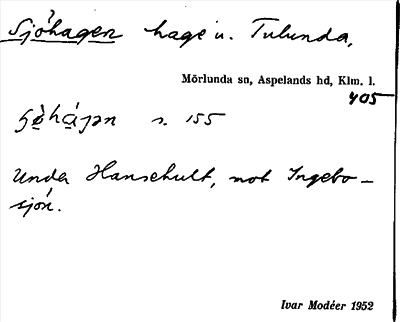 Sjöhagen hage u. Tulunda,
Mörlunda sn, Aspelands hd, Klm. l.
405
s. 155
Under Hanschult, mot Ingebo-
sjön.
Ivar Modéer 1952